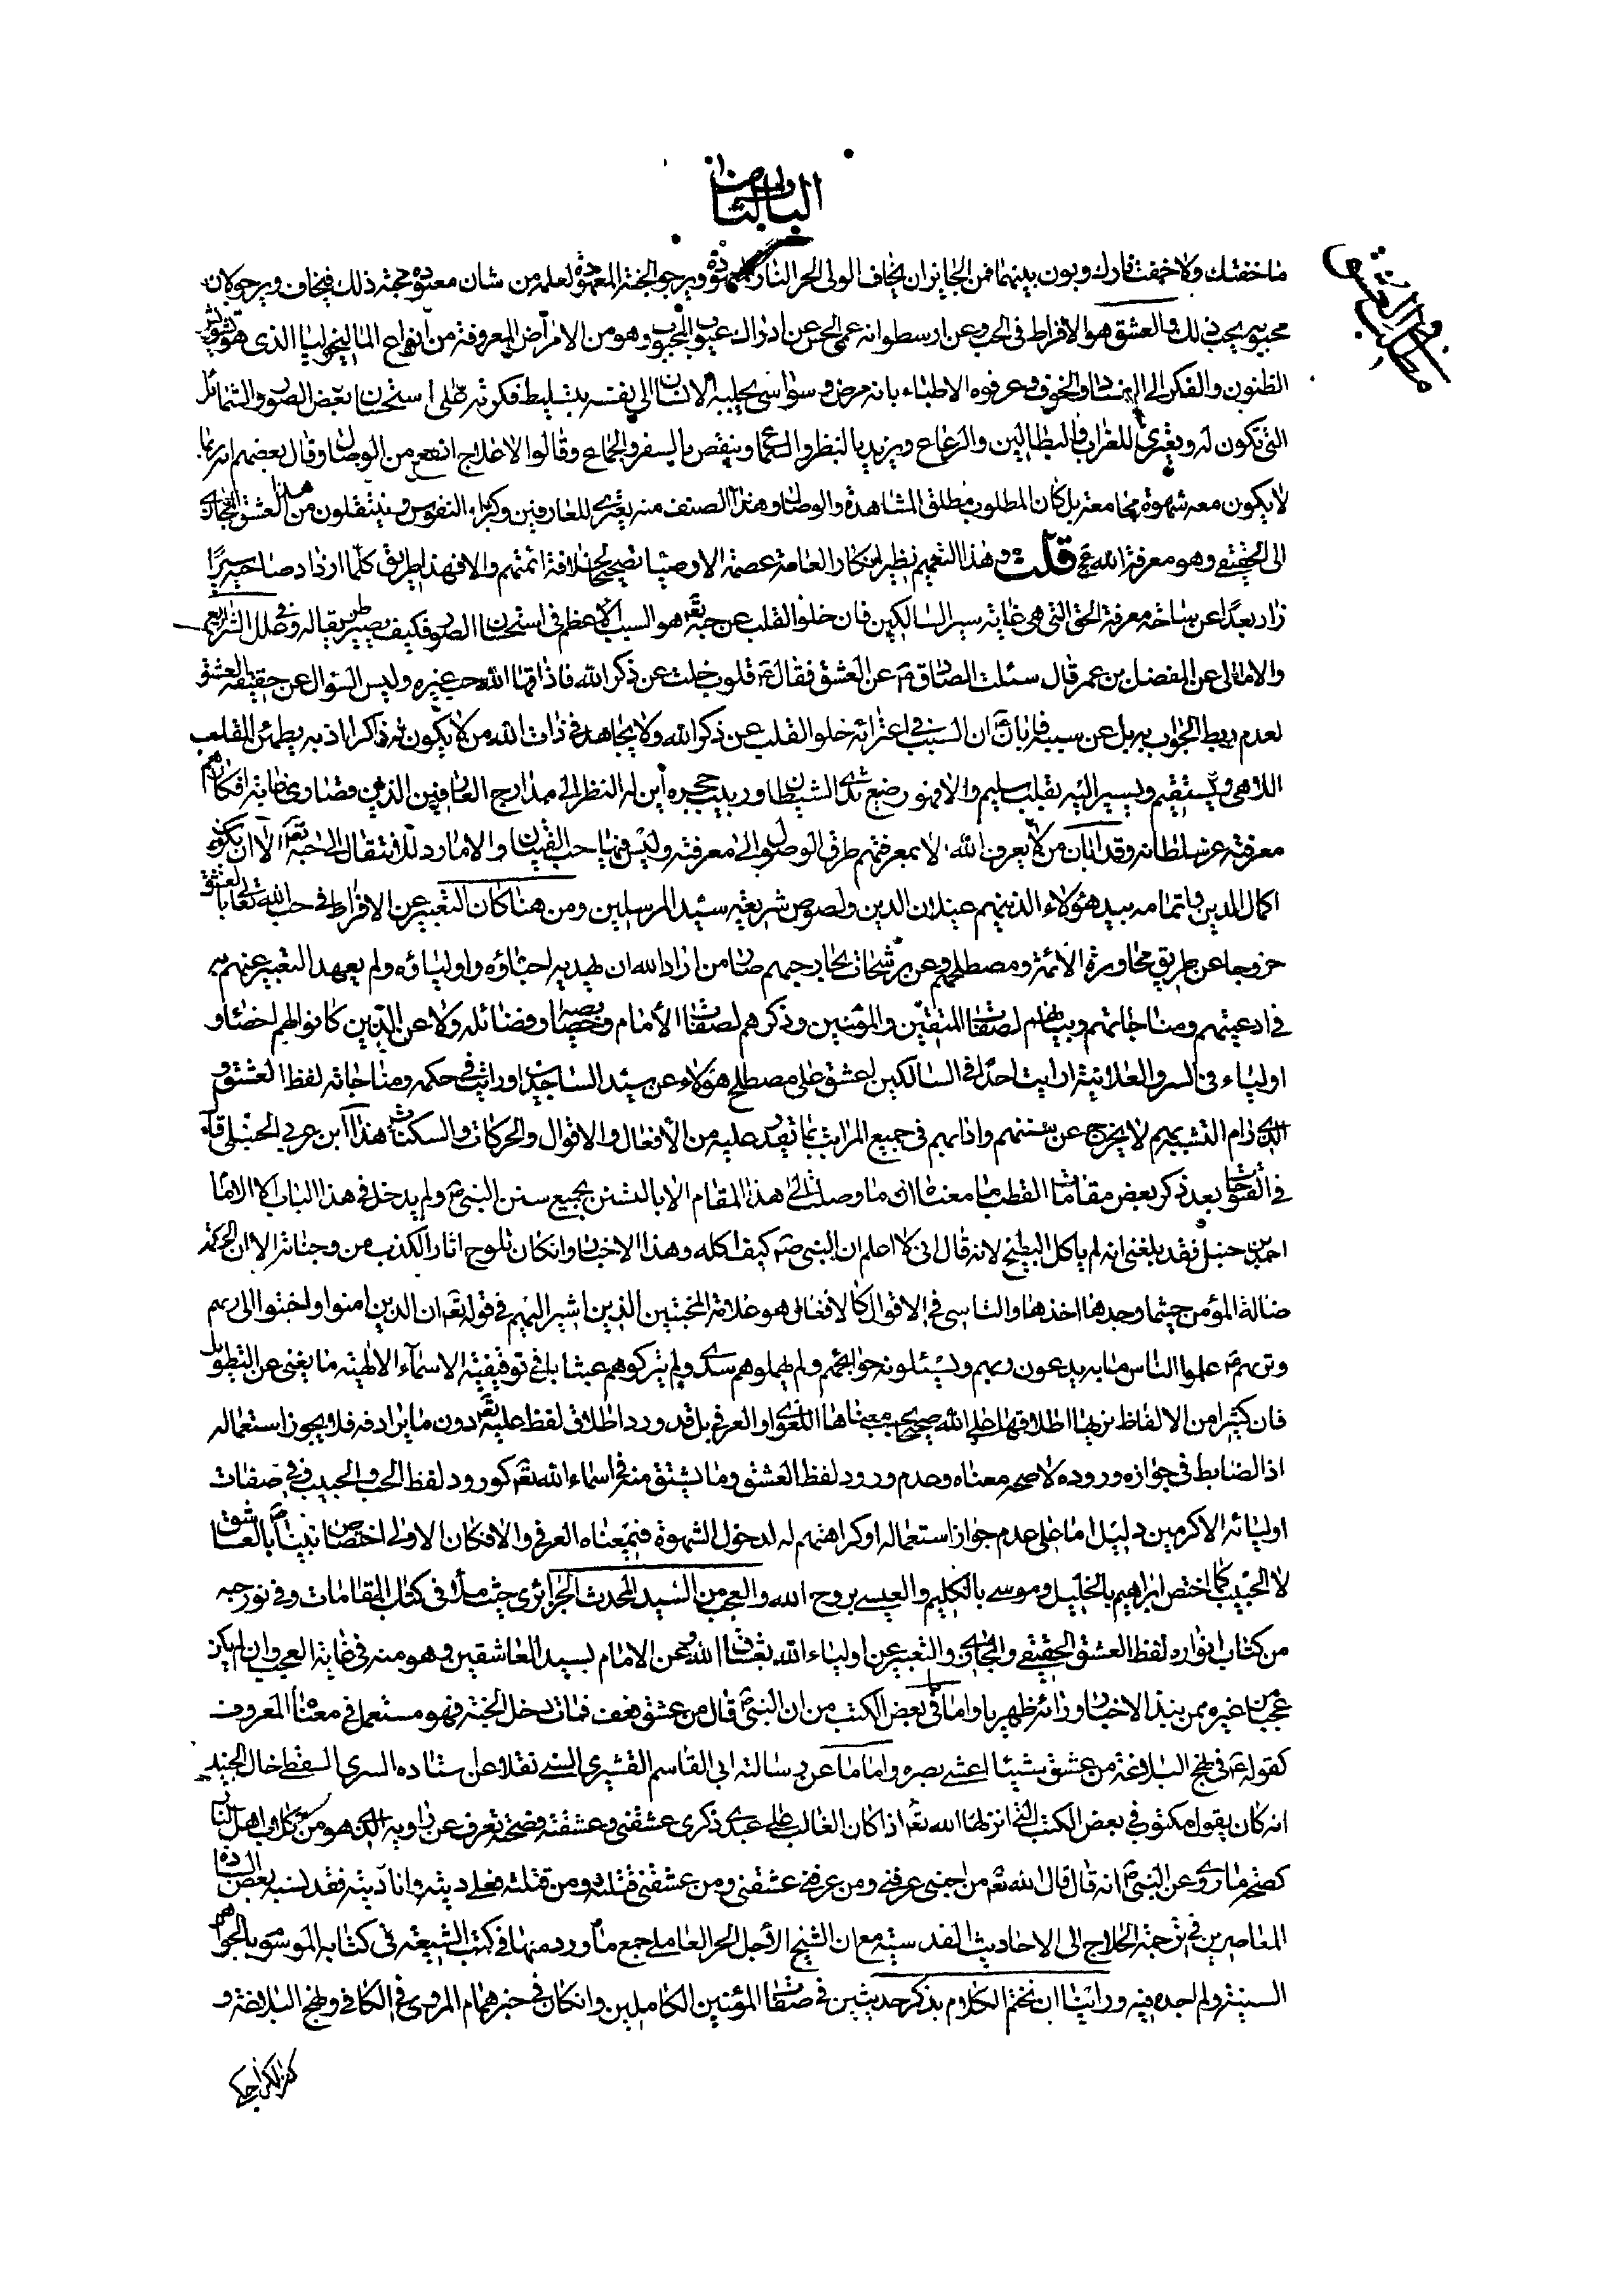 الباب الثامن
مطلب في رد العشق
ما خفتك ولا خفت نارك وبون بينهما فمن الجايز ان يخاف الولي الحر النار المعهودة ويرجو الجنة المعهودة لعلمه من شان معبوده محبة ذلك فيخاف ويرجو لان
محبوبه يحب ذلك والعشق هو الافراط في الحب وعن ارسطو انه عمى الحس عن ادراك عيوب المحبوب وهو من الامراض المعروفة من انواع الماليخوليا الذي هو تشويش
الظنون والفكر الى الفساد والخوف وعرفوه الاطباء بانه مرض وسواسي يجلبه الانسان الى نفسه بتسليط فكرته على استحسان بعض الصور والشمائل
التي تكون له ويعتري للعزاب والبطالين والرعاع ويزيد بالنظر والسماع وينقص بالسفر والجماع وقالوا لا علاج انفع من الوصال وقال بعضهم انه ربما
لا يكون معه شهوة مجامعة بل كان المطلوب مطلق المشاهدة والوصال وهذا الصنف منه يعتري للعارفين وكبراء النفوس وينتقلون من هذا العشق المجازي
الى الحقيقي وهو معرفة الله عج قلت وهذا التعميم نظير انكار العامة عصمة الاوصياء تصحيحا لخلافة ائمتهم والا فهذا طريق كلما ازداد صاحبه سيرا
زاد بعدا عن ساحة معرفة الحق التي هي غاية سير السالكين فان خلو القلب عن حبه تع هو السبب الاعظم في استحسان الصور فكيف يصير طريقا له وفي علل الشرايع
والامالي عن المفضل بن عمر قال سئلت الصادق ع عن العشق فقال ع قلوب خلت عن ذكر الله فاذاقها الله حب غيره وليس السؤال عن حقيقة العشق
لعدم ربط الجواب به بل عن سببه فابان ع ان السبب في اعترائه خلو القلب عن ذكر الله ولا يجاهد في ذات الله من لا يكون له ذاكرا اذ به يطمئن القلب
اللاهي ويستقيم ويسير اليه بقلب سليم والا فهو رضيع ثدي الشيطان وربيب حجره اين له النظر الى مدارج العارفين الذين قصارى غاية افكارهم
معرفة عز سلطانه وقد ابان من لا يعرف الله لا بمعرفتهم طرق الوصول الى معرفته وليس فيها حب الفتيان والامارد للانتقال الى حبه تع الا ان يكون
اكمال الدين واتمامه بيد هؤلاء الذينهم عيدان الدين ولصوص شريعة سيد المرسلين ومن هنا كان التعبير عن الافراط في حب الله تعالى بالعشق
خروجا عن طريق محاورة الائمة ومصطلحهم وعن ترشحات بحار رحمتهم صار من اراد الله ان يهديه احباؤه واولياؤه ولم يعهد التعبير عنهم به
في ادعيتهم ومناجاتهم وبيانهم لصفات المتقين والمؤمنين وذكرهم لصفات الامام وخصاله وفضائله ولا عن الذين كانوا لهم اخصاء و
اولياء في السر والعلانية ارايت احدا في السالكين اعشق على مصطلح هؤلاء عن سيد الساجدين او رايت في حكمه ومناجاته لفظ العشق و
الذي رام التشبه بهم لا يخرج عن سننهم وادابهم في جميع المراتب بما تقدر عليه من الافعال والاقوال والحركات والسكنات هذا ابن عربي الحنبلي قال
في الفتوحات بعد ذكر بعض مقامات القطب ما معناه اني ما وصلت الى هذا المقام الا بالتسنن بجميع سنن النبي ص ولم يدخل في هذا الباب كالامام
احمد بن حنبل فقد بلغني انه لم ياكل البطيخ لانه قال اني لا اعلم ان النبي ص كيف اكله وهذا الاخبار وان كان تلوح اثار الكذب من وجناته الا ان الحكمة
ضالة المؤمن حيثما وجدها اخذها والتاسي في الاقوال كالافعال هو علامة المخبتين الذين اشير اليهم في قوله تع ان الذين امنوا واخبتوا الى ربهم
وتريهم ع علموا الناس ما به يدعون ربهم ويسئلونه حوائجهم ولم يهملوهم سدى ولم يتركوهم عبثا بل في توقيفية الاسماء الالهية ما يغني عن التطويل
فان كثيرا من الالفاظ نريها اطلاقها على الله صحيح بمعناها اللغوي او العرفي بل قد ورد اطلاق لفظ عليه تع دون ما يرادفه فلا يجوز استعماله
اذ الضابط في جوازه وروده لا صحة معناه وعدم ورود لفظ العشق وما يشتق منه في اسماء الله تع كورود لفظ الحب والحبيب وفي صفات
اوليائه الاكرمين دليل اما على عدم جواز استعماله او كراهتهم له لدخول الشهوة في معناه العرفي والا فكان الاولى اختصاص نبينا ص بالعاشق
لا الحبيب كما اختص ابراهيم بالخليل وموسى بالكليم والعيسى بروح الله والعجب من السيد المحدث الجزائري حيث ملا في كتاب المقامات وفي نور حبه
من كتاب انواره لفظ العشق الحقيقي والمجازي والتعبير عن اولياء الله بعشاق الله وعن الامام بسيد العاشقين وهو منه في غاية العجب وان لم يكن
عجبا من غيره ممن ينبذ الاخبار ورائه ظهريا واما ما في بعض الكتب من ان النبي ص قال من عشق فعف فمات دخل الجنة فهو مستعمل في معناه المعروف
كقوله ع في نهج البلاغة من عشق شيئا اعشى بصره واما ما عن رسالة ابي القاسم القشيري السني نقلا عن استاده السري السقطي خال الجنيد
انه كان يقول مكتوب في بعض الكتب التي انزلها الله تع اذا كان الغالب على عبدي ذكري عشقني وعشقته فصحته تعرف عن راويه الذي هو من كلاب اهل النار
كصحة ما روى عن النبي ص انه قال قال الله تع من احبني عرفني ومن عرفني عشقني ومن عشقني قتلته ومن قتلته فعلي ديته وانا ديته فقد نسبه بعض السادة
المعاصرين في ترجمة الحلاج الى الاحاديث القدسية مع ان الشيخ الاجل الحر العاملي جمع ما ورد منها في كتب الشيعة في كتابه الموسوم بالجواهر
السنية ولم اجده فيه ورايت ان نختم الكلام بذكر حديثين في صفات المؤمنين الكاملين وان كان في خبر همام المروي في الكافي ونهج البلاغة و
كنز الكراجكي